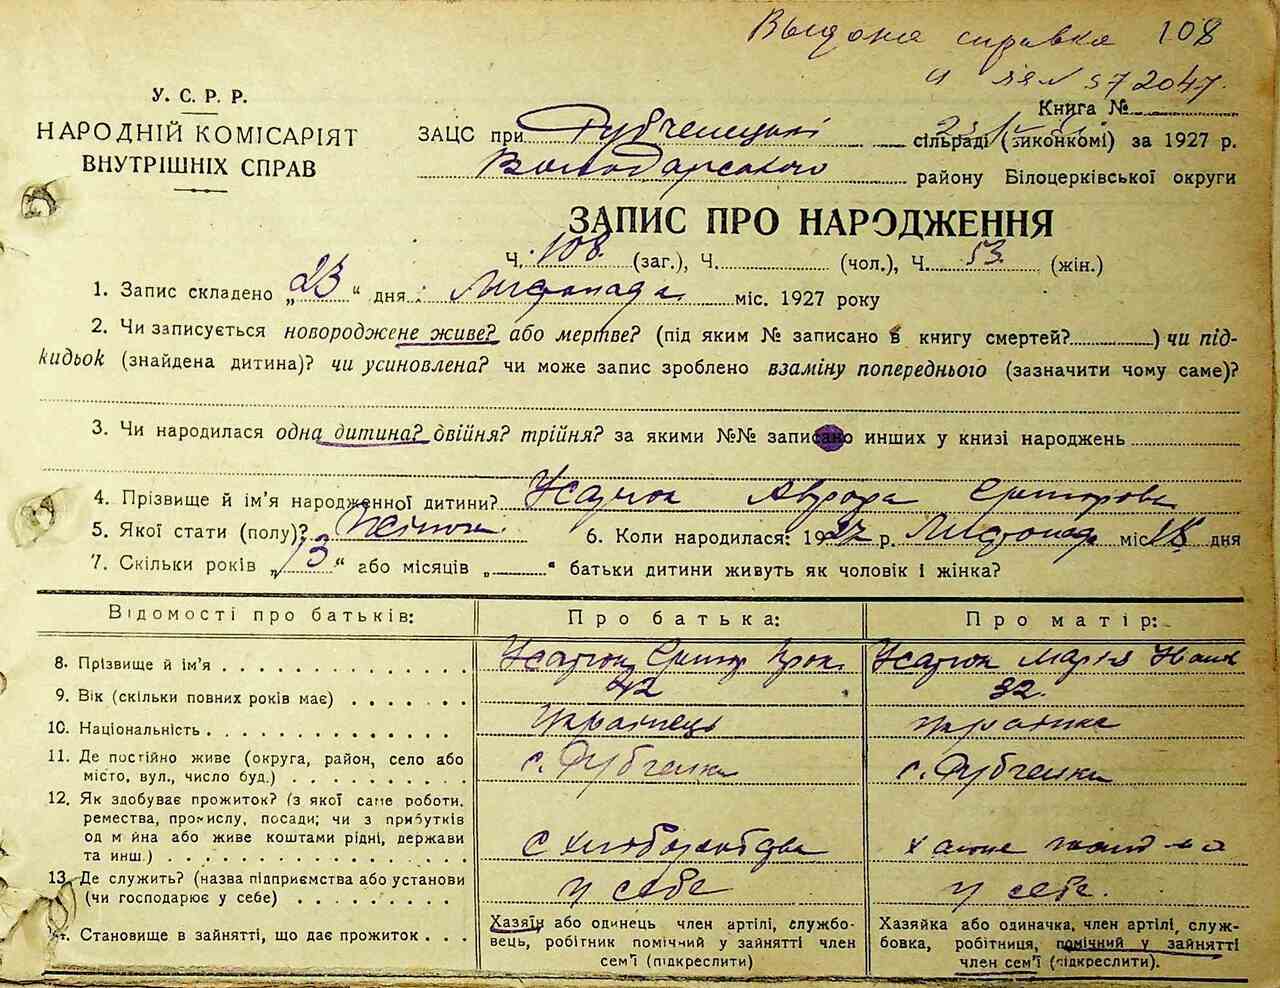 Выдана справка 108
У. С. Р. Р.
НАРОДНІЙ КОМІСАРІЯТ
ВНУТРІШНІХ СПРАВ
Книга №
ЗАЦС при сільраді (виконкомі) за 1927 р.
Володарського району Білоцерківської округи
ЗАПИС ПРО НАРОДЖЕННЯ
Ч. 108 (заг.), Ч. (чол.), Ч. 53 (жін.)
1. Запис складено „23“ дня Листопада міс. 1927 року
2. Чи записується новороджене живе? або мертве? (під яким № записано в книгу смертей?) чи під-
кидьок (знайдена дитина)? чи усиновлена? чи може запис зроблено взаміну попереднього (зазначити чому саме)?
3. Чи народилася одна дитина? двійня? трійня? за якими №№ записано инших у книзі народжень
4. Прізвище й ім'я народженної дитини? Аврора
5. Якої стати (полу)? Жіноча 6. Коли народилася: 1927 р. Листопада міс 18 дня
7. Скільки років „13“ або місяців „“ батьки дитини живуть як чоловік і жінка?
Відомості про батьків: Про батька: Про матір:
8. Прізвище й ім'я Марія
9. Вік (скільки повних років має) 42 32.
10. Національність українець українка
11. Де постійно живе (округа, район, село або
місто, вул., число буд.) с. с.
12. Як здобуває прожиток? (з якої саме роботи,
ремества, промислу, посади; чи з прибутків
од майна або живе коштами рідні, держави
та инш.) С хліборобства
13. Де служить? (назва підприємства або установи
(чи господарює у себе) у себе у себе.
14. Становище в зайнятті, що дає прожиток
Хазяїн або одинець член артілі, службо-
вець, робітник помічний у зайнятті член
сем'ї (підкреслити)
Хазяйка або одиначка, член артілі, служ-
бовка, робітниця, помічний у зайнятті
член сем'ї (підкреслити).